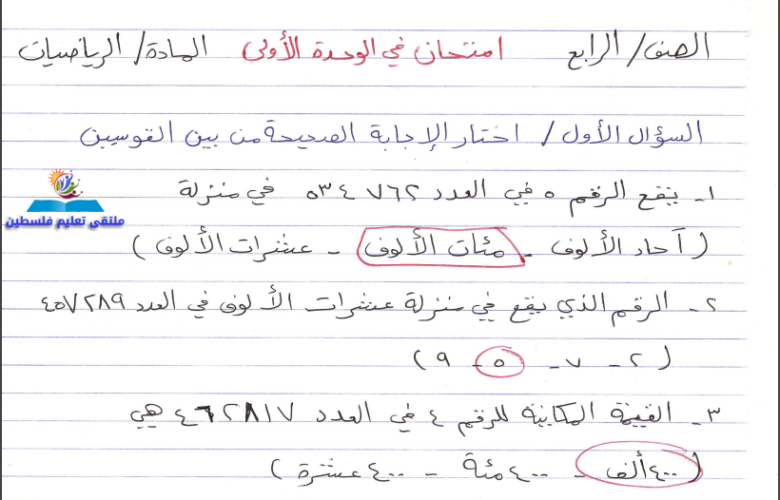 الصف/ الرابع امتحان في الوحدة الأولى المادة/ الرياضيات
السؤال الأول / اختار الإجابة الصحيحة من بين القوسين
١- يقع الرقم ٥ في العدد ٥٣٤٧٦٢ في منزلة
( آحاد الألوف - مئات الألوف - عشرات الألوف )
٢- الرقم الذي يقع في منزلة عشرات الألوف في العدد ٤٥٧٢٨٩
( ٢ - ٧ - ٥ - ٩ )
٣- القيمة المكانية للرقم ٤ في العدد ٤٦٢٨١٧ هي
( ٤٠٠ ألف - ٤٠٠ مئة - ٤٠٠ عشرة )
ملتقى تعليم فلسطين